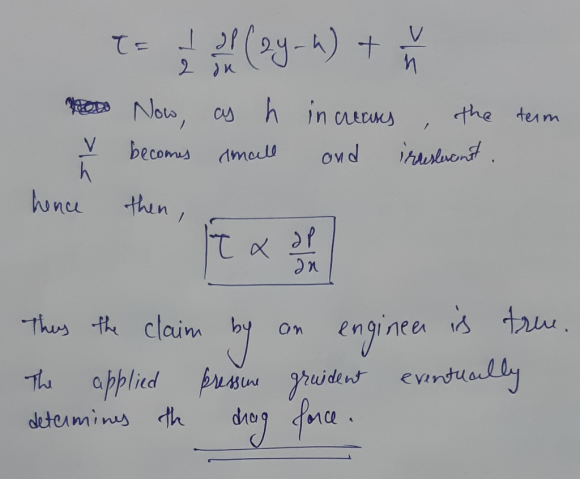 τ = 1/2 ∂P/∂x (2y-h) + V/h
Now, as h increases, the term
V/h becomes small and irrelevant.
hence then,
τ ∝ ∂P/∂x
Thus the claim by an engineer is true.
The applied pressure graident eventually
determines th drag force.